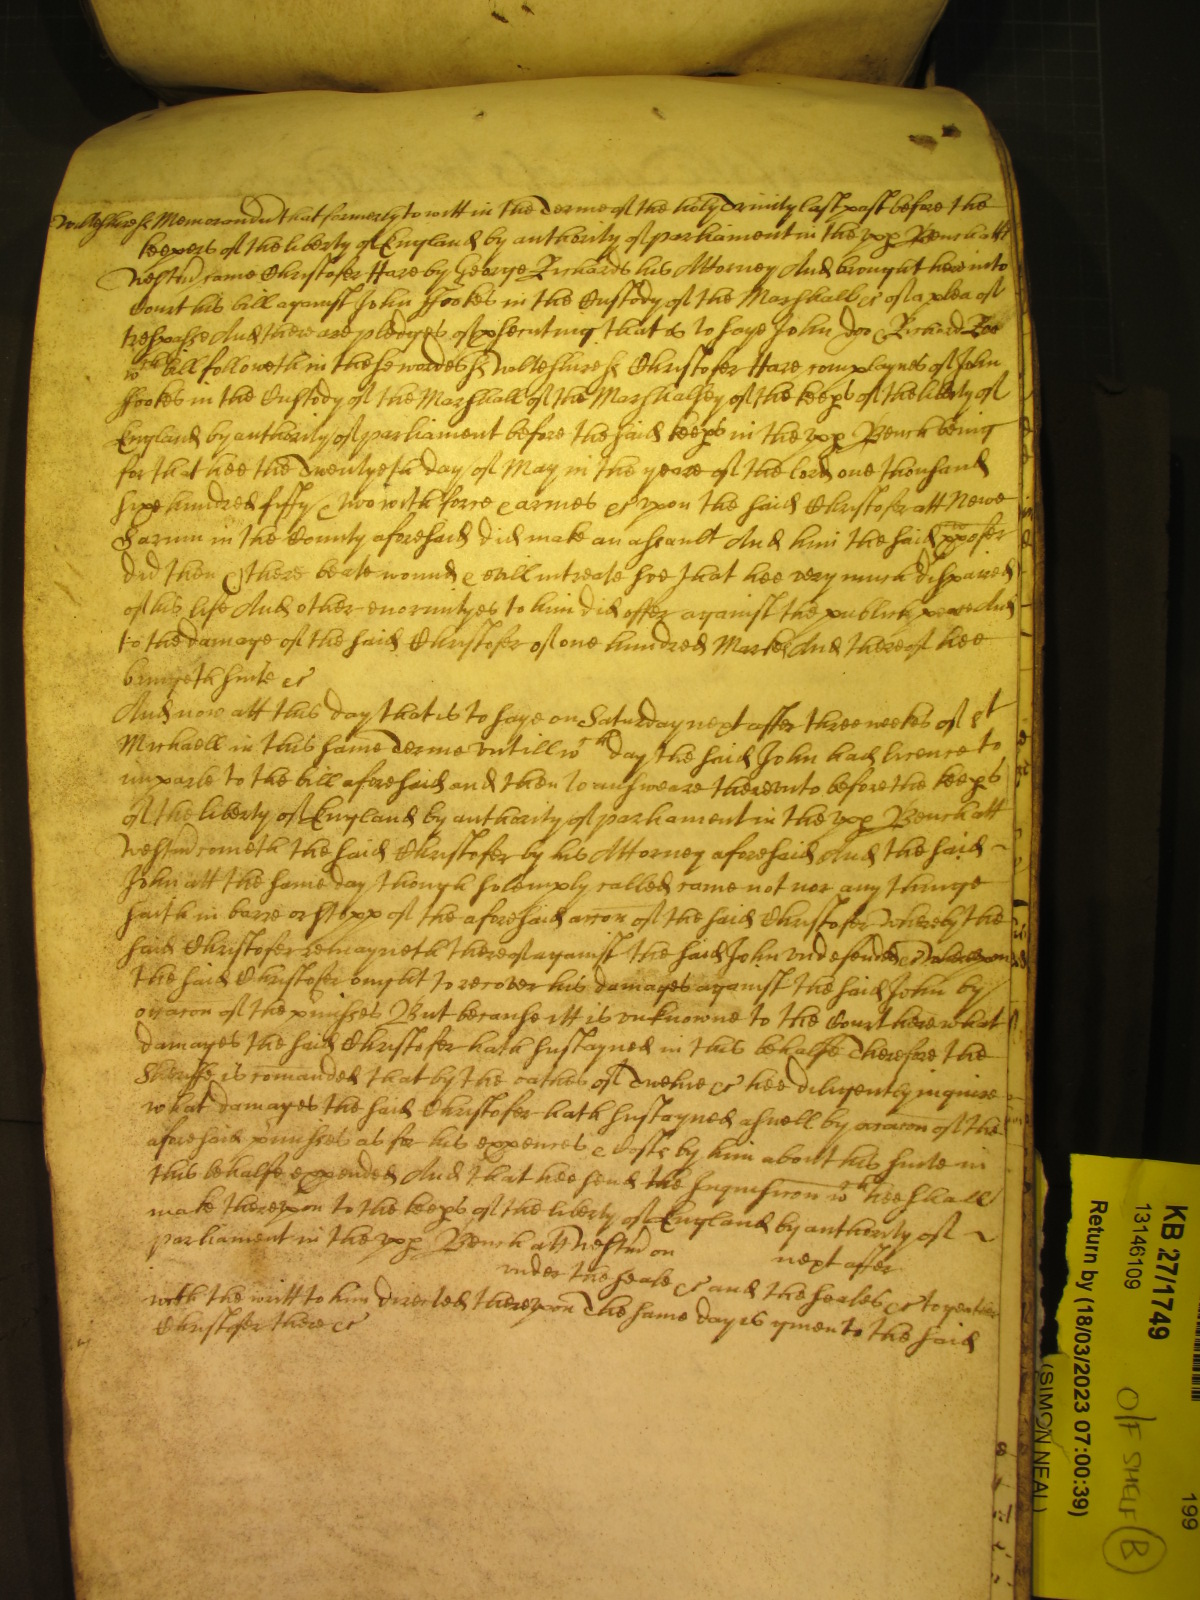 Wilteshire ss Memorandu that formerly to witt in the Terme of the holy Trinity last past before the
keepers of the liberty of England by authority of parliament in the vpp Bench att
Westm came Christofer Hare by George Richards his Attorney And brought here into
Court his bill against John Ffookes in the Custody of the Marshall &c of a plea of
trespasse And there are pledges of psecuting that is to saye John Doo & Richard Roo
wch bill followeth in these wordes ss Wilteshire ss Christofer Hare complaynes of John
Ffookes in the Custody of the Marshall of the Marshalsey of the keeps of the liberty of
England by authority of parliament before the said keeps in the vpp Bench being
for that hee the Twentyeth day of May in the yeare of the lord one thousand
sixe hundred fifty & two with force & armes &c vpon the said Christofer att Newe
Sarum in the County aforesaid did make an assault And him the said Xpofer
did then & there beate wound & evill intreate soe That hee very much dispaired
of his life And other enormityes to him did offer against the publick peace And
to the damage of the said Christofer of one hundred Markes And thereof hee
bringeth suite &c
And now att this day that is to saye on Saturday next after three weekes of St
Michaell in this same Terme vntill wch day the said John had licence to
imparle to the bill aforesaid and then to answeare therevnto before the keeps
of the liberty of England by authority of parliament in the vpp Bench att
Westm cometh the said Christofer by his Attorney aforesaid And the said
John att the same day though solemply called came not nor any thinge
saith in barre or stopp of the aforesaid accon of the said Christofer Whereby the
said Christofer remayneth thereof against the said John vndefended &c Whereupon
the said Christofer ought to recover his damages against the said John by
occacon of the pmisses But because itt is vnknowne to the Court here what
damages the said Christofer hath sustayned in this behalfe Therefore the
Sheriffe is comanded that by the oathes of Twelve &c hee diligently inquire
what damages the said Christofer hath sustayned aswell by occacon of the
aforesaid pmisses as for his expences & Costs by him about his suite in
this behalfe expended And that hee send the Inquisicon wch hee shall
make therevpon to the keeps of the liberty of England by authority of
parliament in the vpp Bench att Westm on next after
vnder the seale &c and the seales &c together
with the writt to him directed therevpon The same day is given to the said
Christofer there &c
KB 27/1749
13146109
Return by (18/03/2023 07:00:39)
(SIMON NEAL)
199
O/F SHELF
B